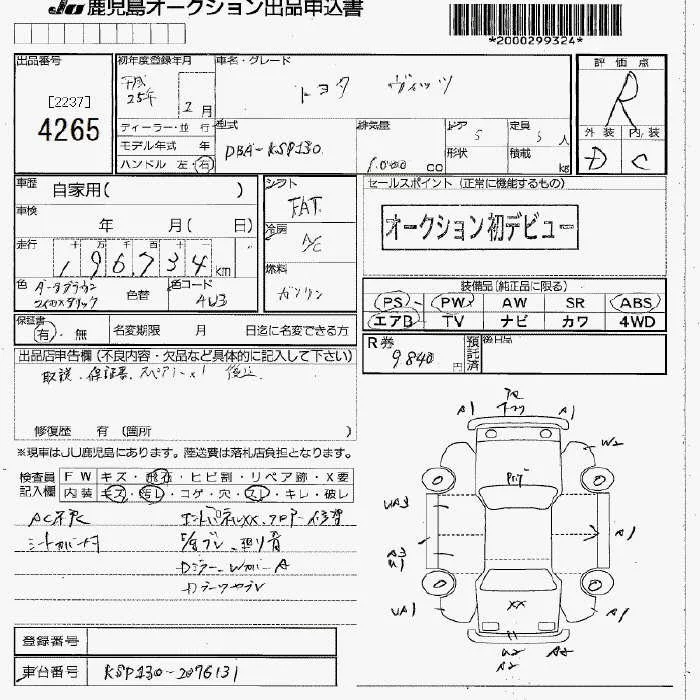 JU 鹿児島オークション出品申込書
*2000299324*
出品番号
[2237]
4265
初年度登録年月
平成
25年 2月
ディーラー・並 行
モデル年式 年
ハンドル 左・右
車名・グレード
トヨタ ヴィッツ
型式
DBA-KSP130
排気量
1.000 cc
ドア 5
形状
定員 5 人
積載 kg
評価点
R
外装 内装
D C
車歴 自家用( )
車検
年 月( 日)
走行 十 万 千 百 十
196734 km
色
色替
色コード
4W3
シフト
FAT
冷房
A/C
燃料
ガソリン
セールスポイント (正常に機能するもの)
オークション初デビュー
装備品(純正品に限る)
PS PW AW SR ABS
エアB TV ナビ カワ 4WD
R券
9840円
預託済
後日品
保証書
有・無
名変期限 月 日迄に名変できる方
出品店申告欄(不良内容・欠品など具体的に記入して下さい)
取説、保証書、スペアキー×1 後送
修復歴 有(箇所 )
※現車はJU鹿児島にあります。陸送費は落札店負担となります。
検査員
記入欄
FW キズ・飛石・ヒビ割・リペア跡・X要
内装 キズ・汚レ・コゲ・穴・スレ・キレ・破レ
シートカバー付
エンドパネルXX、フロアー修理
登録番号
車台番号 KSP130-2076131
A1 A1
W2
UA3
A3
U1
A1
UA1
A1
XX
U2
A2
A2